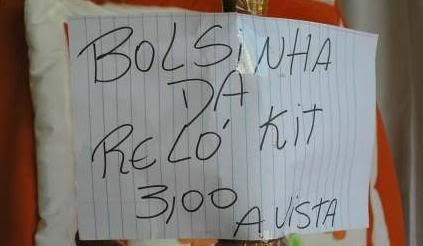 BOLSiNHA
DA
RELÓ KiT
3,00 A ViSTA